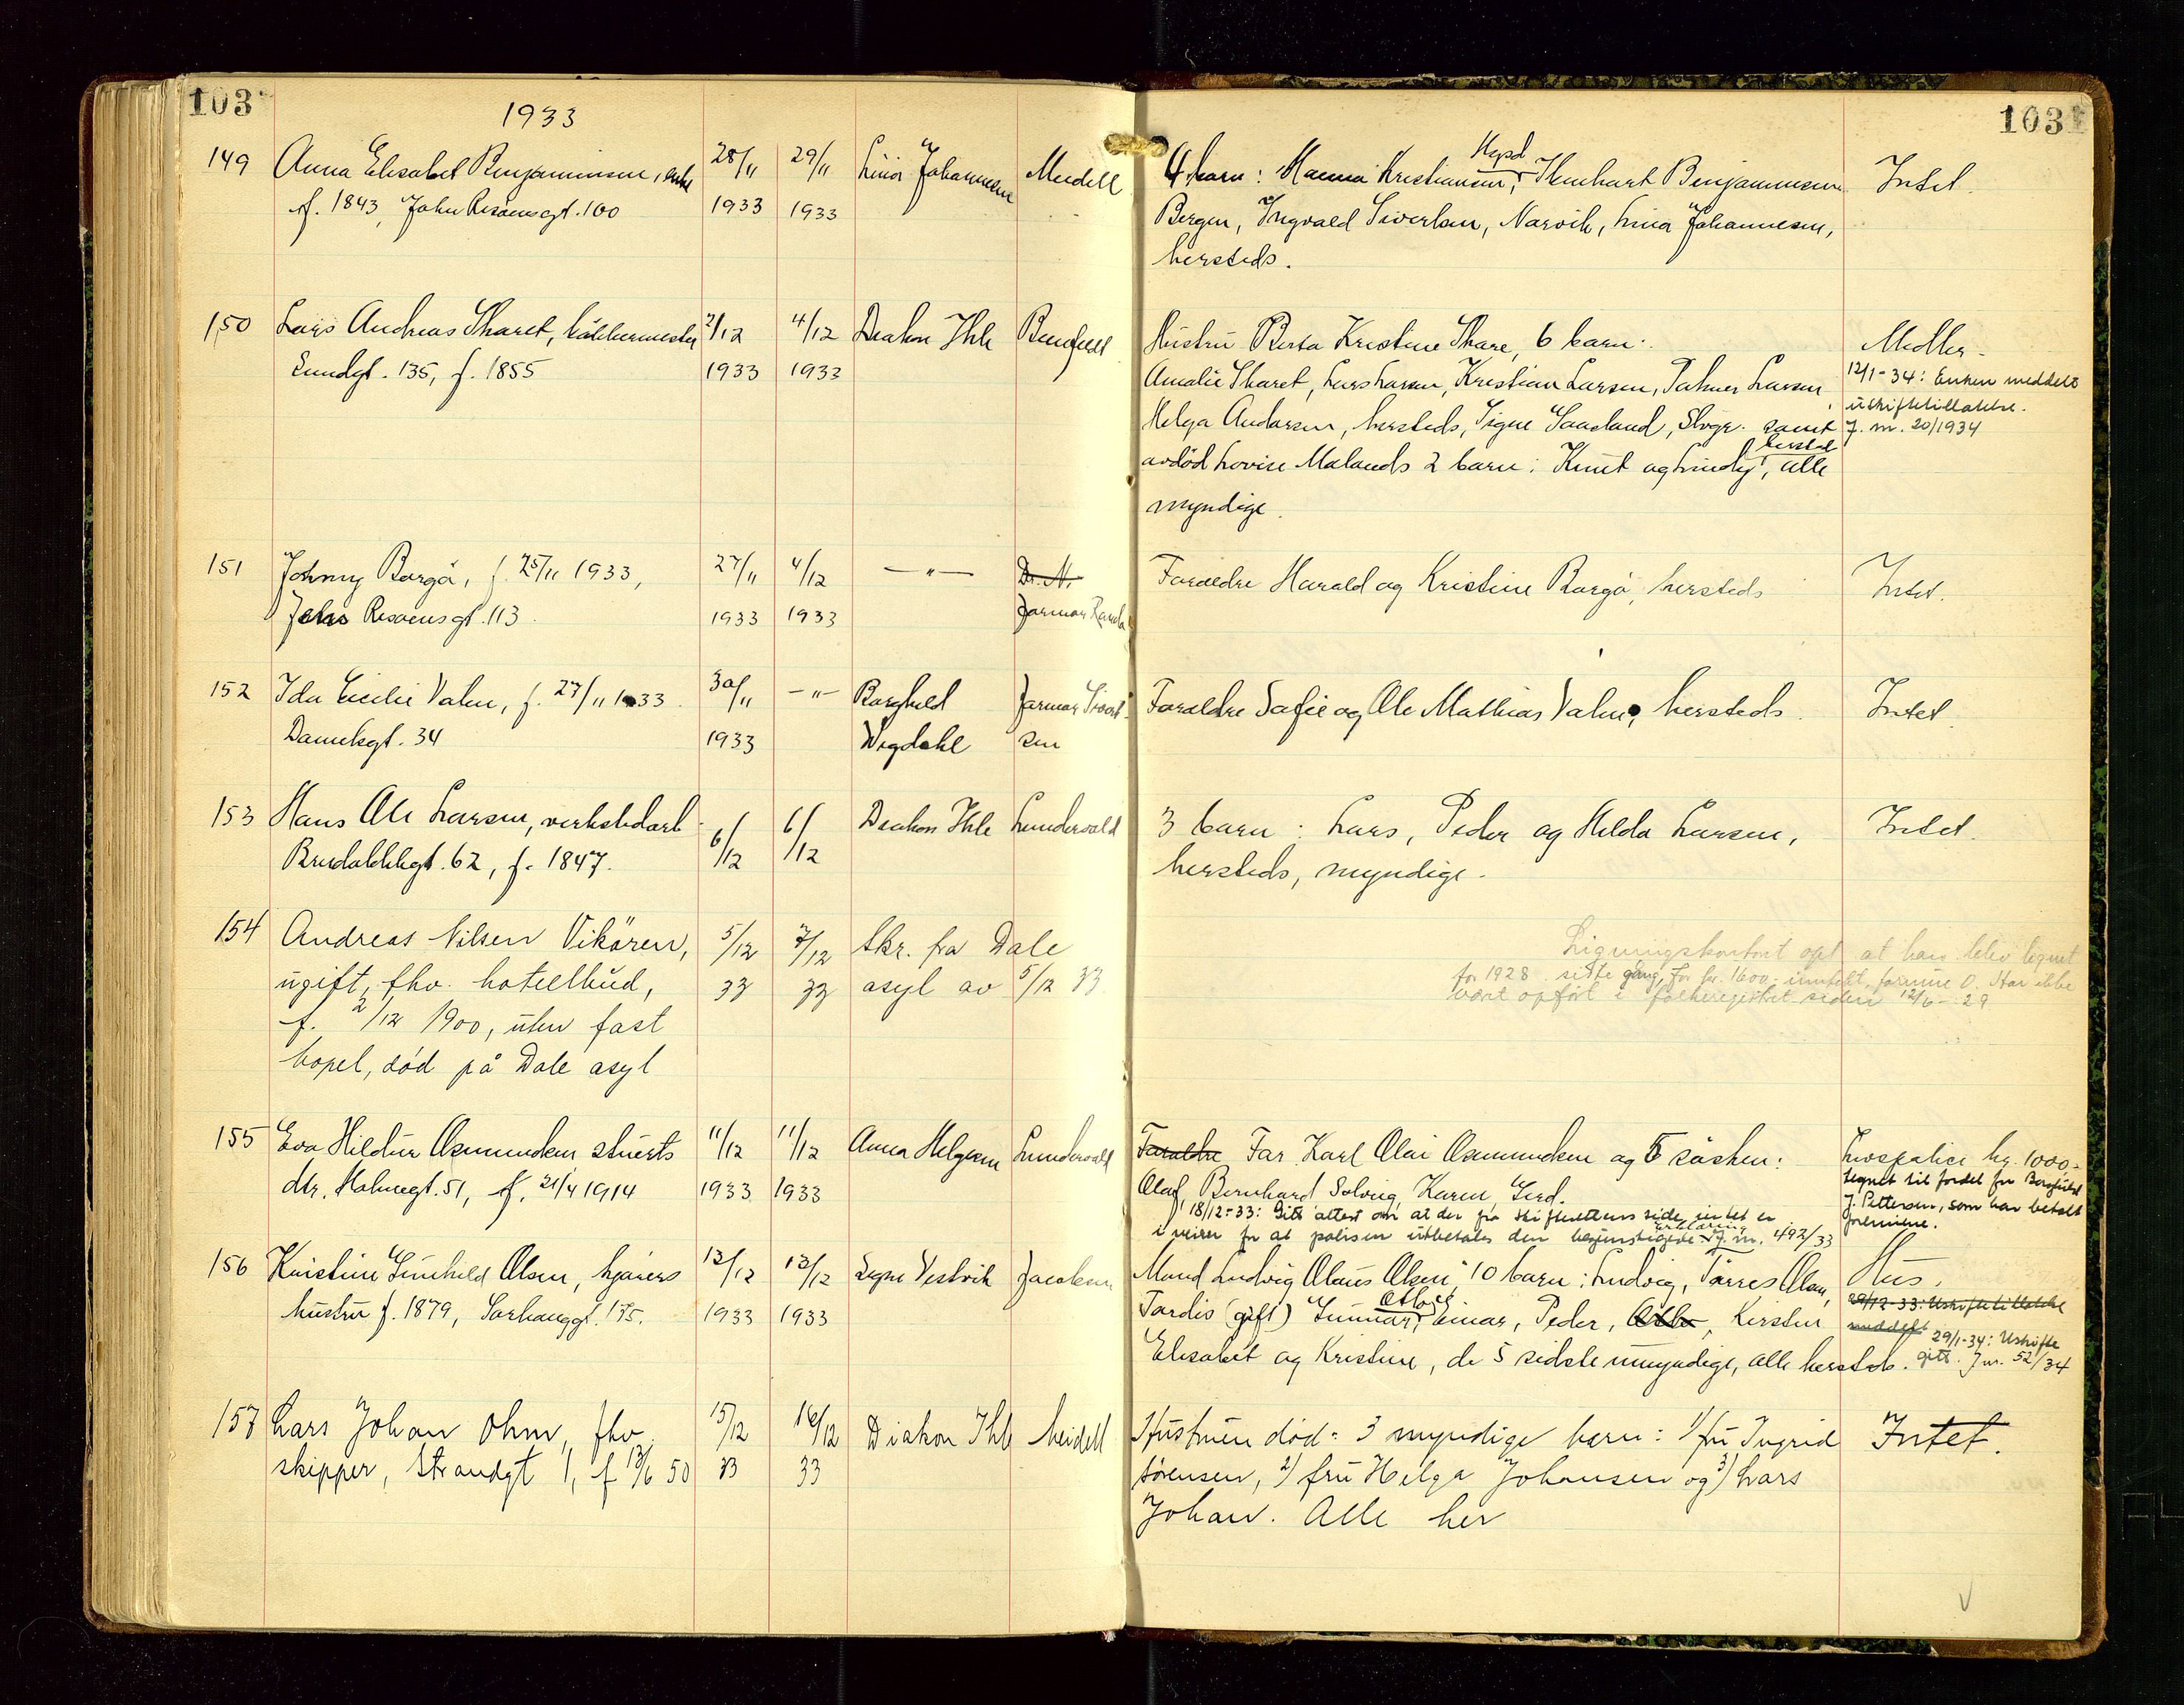 103
1933
103
149 Anna Elisabet Benjaminsen, enke 28/11 29/11 Lina Johannesen Meidell
f. 1843, John Risöensgt. 100 1933 1933
Hgsd
4 barn: Manna Kristiansen, Benjaminsen Intet.
Bergen, Ingvald Siverlsen, Narvik, Lina Johannesen,
hersteds.
150 Lars Andreas Skaret, bökkermester 2/12 4/12 Diakon Ihle
Lundgt. 135, f. 1855 1933 1933
Hustru Berta Kristine Skare, 6 barn: Midler.
Amalie Skaret, Lars Larsen, Kristian Larsen, Larsen
12/1-34: Enken meddelt
uskiftetillatelse.
Helga Andersen, hersteds, Signe Saaland, Skogr. samt J. nr. 20/1934
hersted
avdöd Lovise Malands 2 barn: Knut og, alle
myndige.
151 Johnny Borgö, f. 25/11 1933, 27/11 4/12 — " — Dr. N.
John Risøensgt. 113 1933 1933 Jormor
Foraeldre Harald og Kristine Borgö, hersteds Intet.
152 Ida Cecilie Valen, f. 27/11 1933. 30/11 — " — Borghild Jormor
Damsksgt. 34 1933 Wigdahl sen
Foraeldre Sofie og Ole Mathias Valen, hersteds. Intet.
153 Hans Ole Larsen, verkstedarb. 6/12 6/12 Diakon Ihle Lundervold
Bredalskkgt. 62, f. 1847.
3 barn: Lars, Peder og Hilda Larsen, Intet.
hersteds, myndige.
154 Andreas Nilsen Vikören, 5/12 7/12 Skr. fra Dale
ugift, fhv. hotellbud, 33 33 asyl av 5/12 33
f. 2/12 1900, uten fast
bopel, död på Dale asyl
Ligningskontoret opl. at han blev lignet
for 1928 siste gang, for kr. 1600.- inntekt, formue 0. Har ikke
vært opfört i folkeregistret siden 12/6-29
155 Eva Hildur Osmundsen, stuerts 11/12 11/12 Anna Helgesen Lundervold
dtr. Malmegt. 51, f. 21/4 1914 1933 1933
Foraeldre Far Karl Olai Osmundsen og 5 söshen: Livspolice kr. 1000.-
Olaf, Bernhard, Solveig, Karen, Gerd. tegnet til fordel for Bergfult
18/12-33: Gitt attest om at der fra skifterettens side intet er J. Pettersen, som har betalt
erklæring
i veien for at polisen utbetales den begunstigede. J. nr. 492/33 premiene.
156 Kristine Gunhild Olsen, kjörers 12/12 13/12 Signe Vestvik Jacobsen
hustru f. 1879, Sørhauggt. 175. 1933 1933
Mand Ludvig Olaus Olsen, 10 barn: Ludvig, Törres Olav, Hus.
Ottar
Tordis (gift) Gunnar, Einar, Peder, , Kirsten 29/12-33: Uskiftetillatelse
meddelt 29/1-34: Uskifte
Elisabet og Kristine, de 5 sidste umyndige, alle hersteds. gitt. J nr. 52/34
157 Lars Johan Ohm, fhv 15/12 16/12 Diakon Ihle Meidell
skipper, Strandgt 1, f 13/6 50 33 33
Hustruen död: 3 myndige barn: 1/ fru Ingrid Intet.
Sörensen, 2/ fru Helga Johansen og 3/ Lars
Johan. Alle her